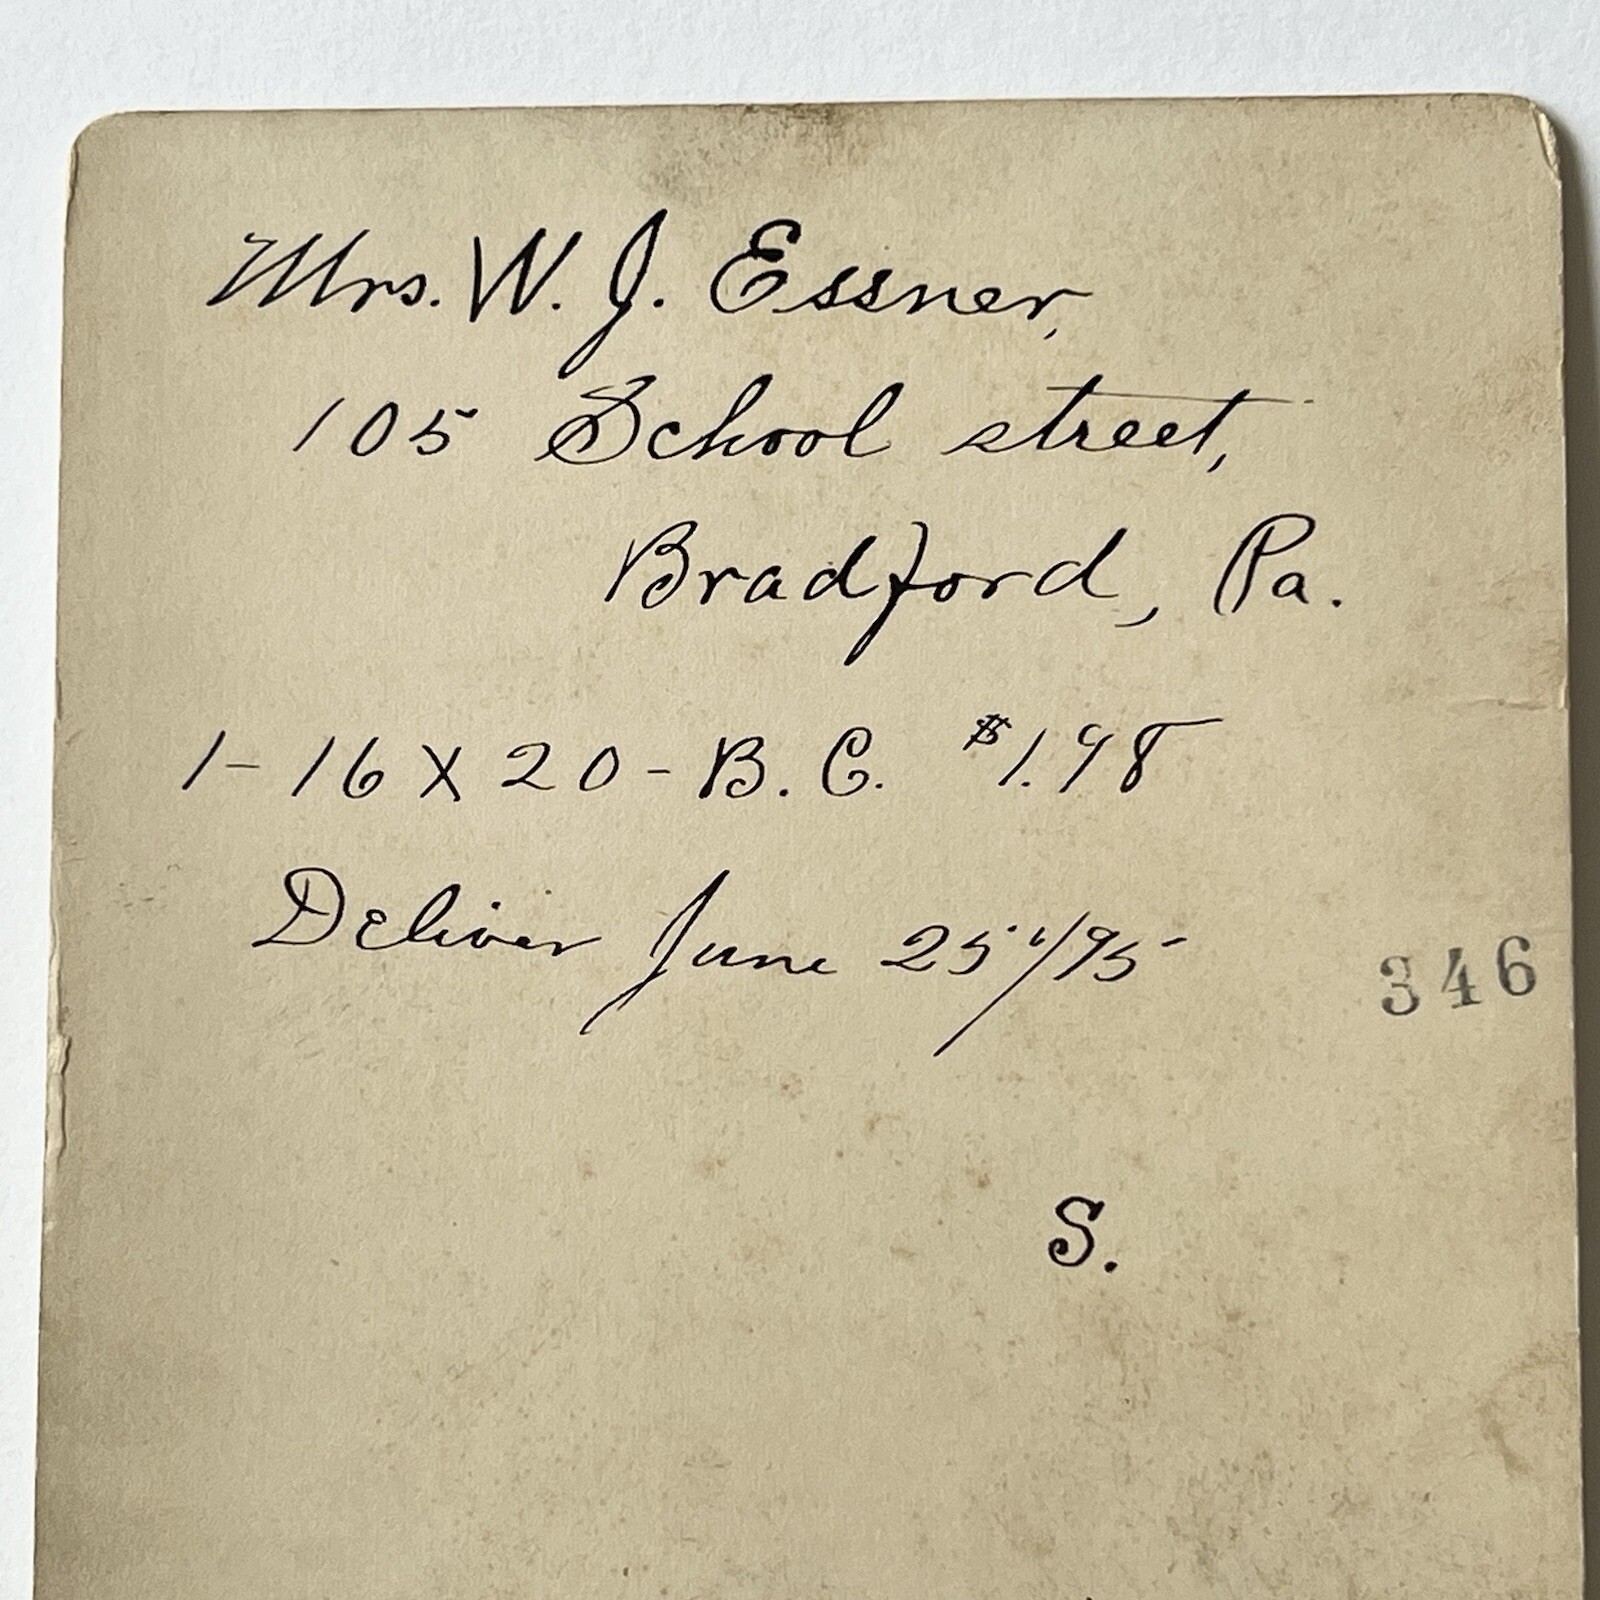 Mrs. W. J. Essner,
105 School street,
Bradford, Pa.
1-16 X 20 - B. C. $1.98
Deliver June 25"/95
346
S.